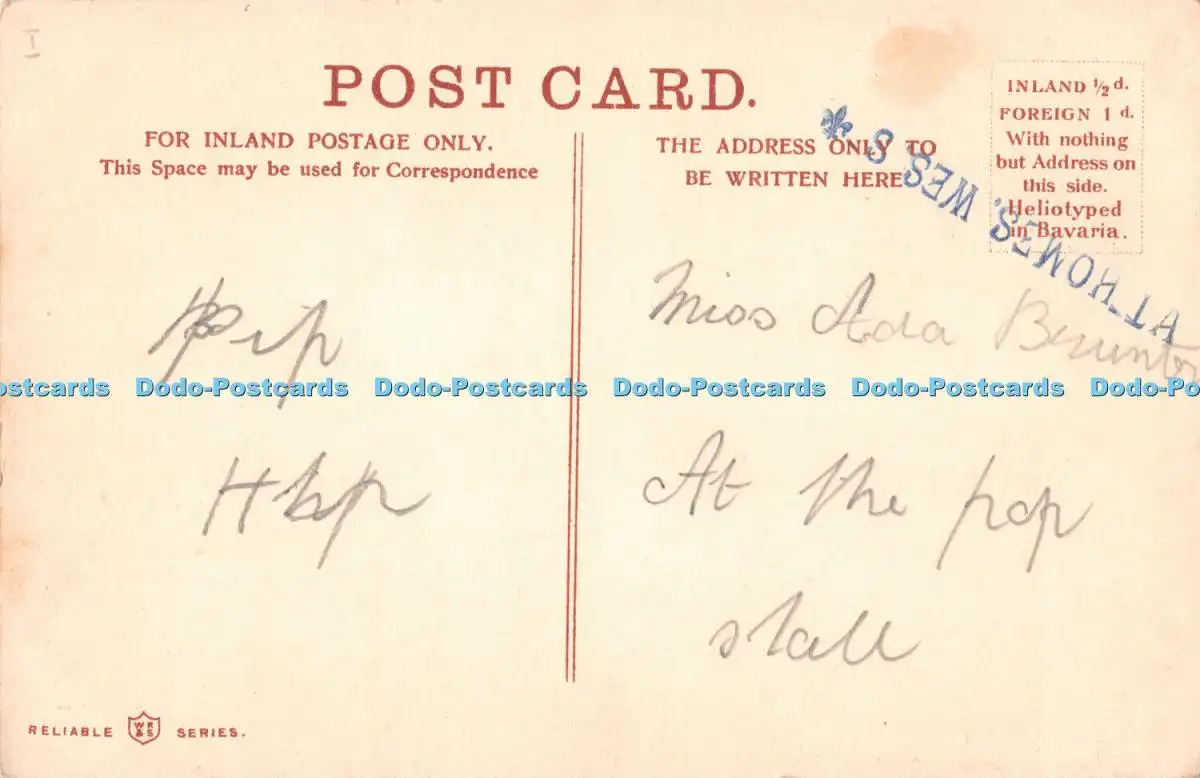 I
POST CARD.
FOR INLAND POSTAGE ONLY.
This Space may be used for Correspondence
THE ADDRESS ONLY TO
BE WRITTEN HERE
INLAND ½ d.
FOREIGN 1 d.
With nothing
but Address on
this side.
Heliotyped
in Bavaria.
AT HOMES, WES S
Pip
Hip
Miss Ada
At the pop
stall
ostcards Dodo-Postcards Dodo-Postcards Dodo-Postcards Dodo-Postcards Dodo-Po
RELIABLE WR &S SERIES.